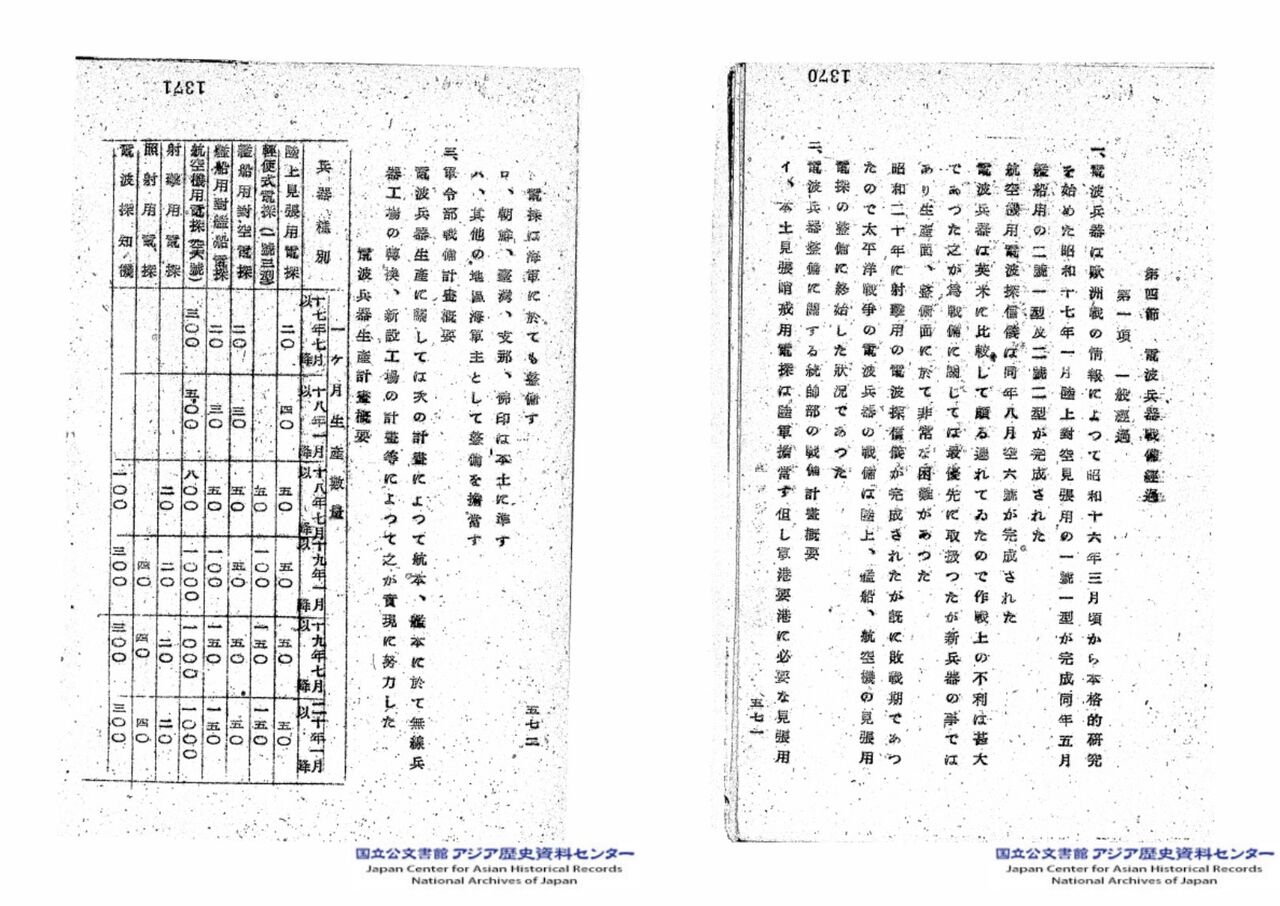 1370
第四節 電波兵器戰備經過
第一項 一般經過
一、電波兵器は歐洲戰の情報によつて昭和十六年三月頃から本格的研究
を始めた昭和十七年一月陸上對空見張用の一號一型が完成同年五月
艦船用の二號一型及二號二型が完成された
航空機用電波探信儀は同年八月空六號が完成された
電波兵器は英米に比較して頗る遲れてゐたので作戰上の不利は甚大
であつた之が爲戰備に關しては最優先に取扱つたが新兵器の事では
あり生産面、整備面に於て非常な困難があつた
昭和二十年に射撃用の電波探信儀が完成されたが既に敗戰期であつ
たので太平洋戰爭の電波兵器の戰備は陸上、艦船、航空機の見張用
電探の整備に終始した狀況であつた
二、電波兵器整備に關する統帥部の戰備計畫概要
イ、本土見張哨戒用電探は陸軍擔當す但し軍港要港に必要な見張用
五七一
国立公文書館 アジア歴史資料センター
Japan Center for Asian Historical Records
National Archives of Japan
1371
電探は海軍に於ても整備す
ロ、朝鮮、臺灣、支那、佛印は本土に準ず
ハ、其他の地區海軍主として整備を擔當す
三、軍令部戰備計畫概要
電波兵器生産に關しては次の計畫によつて航本、艦本に於て無線兵
器工場の轉換、新設工場の計畫等によつて之が實現に努力した
電波兵器生産計畫概要
五七二
兵器種別 一ヶ月生産數量
十七年七月以降 十八年一月以降 十八年七月以降 十九年一月以降 十九年七月以降 二十年一月以降
陸上見張用電探 二〇 四〇 五〇 五〇 五〇 五〇
輕便式電探(一號三型) 五〇 一〇〇 一五〇 一五〇
艦船用對空電探 二〇 三〇 五〇 五〇 五〇 五〇
艦船用對艦船電探 二〇 三〇 五〇 一〇〇 一五〇 一五〇
航空機用電探(空六號) 三〇〇 五〇〇 八〇〇 一〇〇〇 一〇〇〇 一〇〇〇
射撃用電探 二〇 二〇 二〇 二〇
照射用電探 四〇 四〇 四〇
電波探知機 一〇〇 三〇〇 三〇〇 三〇〇
国立公文書館 アジア歴史資料センター
Japan Center for Asian Historical Records
National Archives of Japan